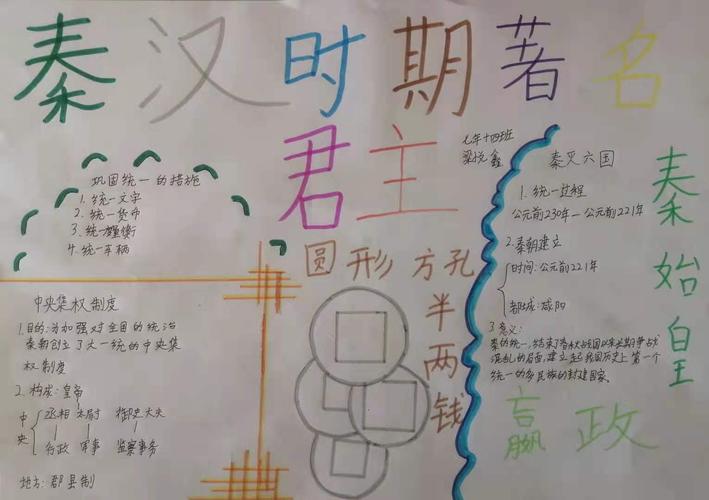 秦汉时期著名
君主
七年十四班
梁悦鑫
巩固统一的措施
1.统一文字
2.统一货币
3.统一度量衡
4.统一车辆
中央集权制度
1.目的:为加强对全国的统治
秦朝创立了大一统的中央集
权制度
2.构成:皇帝
中央
丞相 太尉 御史大夫
行政 军事 监察事务
地方:郡县制
圆形方孔
半两钱
秦灭六国
1.统一过程
公元前230年—公元前221年
2.秦朝建立
时间:公元前221年
都城:咸阳
3.意义:
秦的统一,结束了春秋战国以来长期争战
混乱的局面,建立起我国历史上第一个
统一的多民族的封建国家。
秦始皇
嬴政